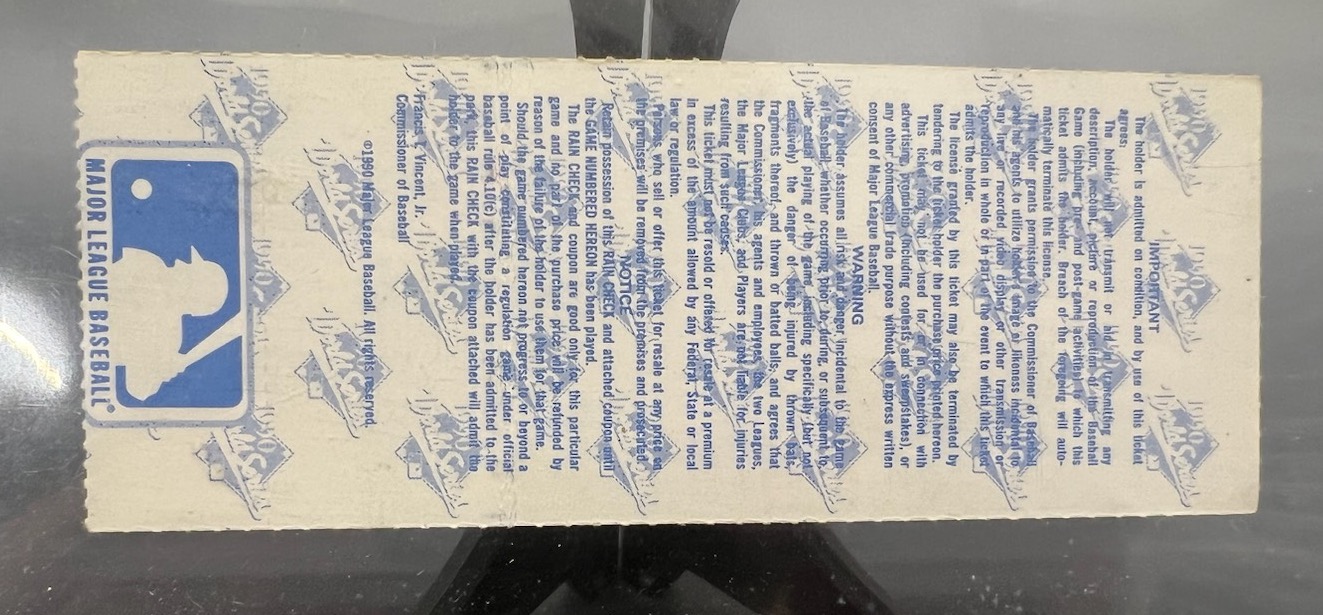 IMPORTANT
The holder is admitted on condition, and by use of this ticket
agrees;
The holder will not transmit or aid in transmitting any
description, account, picture or reproduction of the Baseball
Game (including pre- and post-game activities) to which this
ticket admits the holder. Breach of the foregoing will auto-
matically terminate this license.
The holder grants permission to the Commissioner of Baseball
and his agents to utilize holder's image or likeness incidental to
any live or recorded video display or other transmission or
reproduction in whole or in part of the event to which this ticket
admits the holder.
The license granted by this ticket may also be terminated by
tendering to the ticket holder the purchase price printed hereon.
This ticket may not be used for or in connection with
advertising, promotion (including contests and sweepstakes), or
any other commercial trade purpose without the express written
consent of Major League Baseball.
WARNING
The holder assumes all risk and danger incidental to the game
of Baseball whether occurring prior to, during, or subsequent to,
the actual playing of the game including specifically (but not
exclusively) the danger of being injured by thrown bats,
fragments thereof, and thrown or batted balls, and agrees that
the Commissioner, his agents and employees, the two Leagues,
the Major League Clubs, and Players are not liable for injuries
resulting from such causes.
This ticket must not be resold or offered for resale at a premium
in excess of the amount allowed by any Federal, State or local
law or regulation.
Persons who sell or offer this ticket for resale at any price on
the premises will be removed from the premises and prosecuted.
NOTICE
Retain possession of this RAIN CHECK and attached coupon until
the GAME NUMBERED HEREON has been played.
The RAIN CHECK and coupon are good only for this particular
game and no part of the purchase price will be refunded by
reason of the failure of the holder to use them for that game.
Should the game numbered hereon not progress to or beyond a
point of play constituting a regulation game under official
baseball rule 4.10(c) after the holder has been admitted to the
park, this RAIN CHECK with the coupon attached will admit the
holder to the game when played.
Francis T. Vincent, Jr.
Commissioner of Baseball
©1990 Major League Baseball. All rights reserved.
MAJOR LEAGUE BASEBALL®
1990 World Series